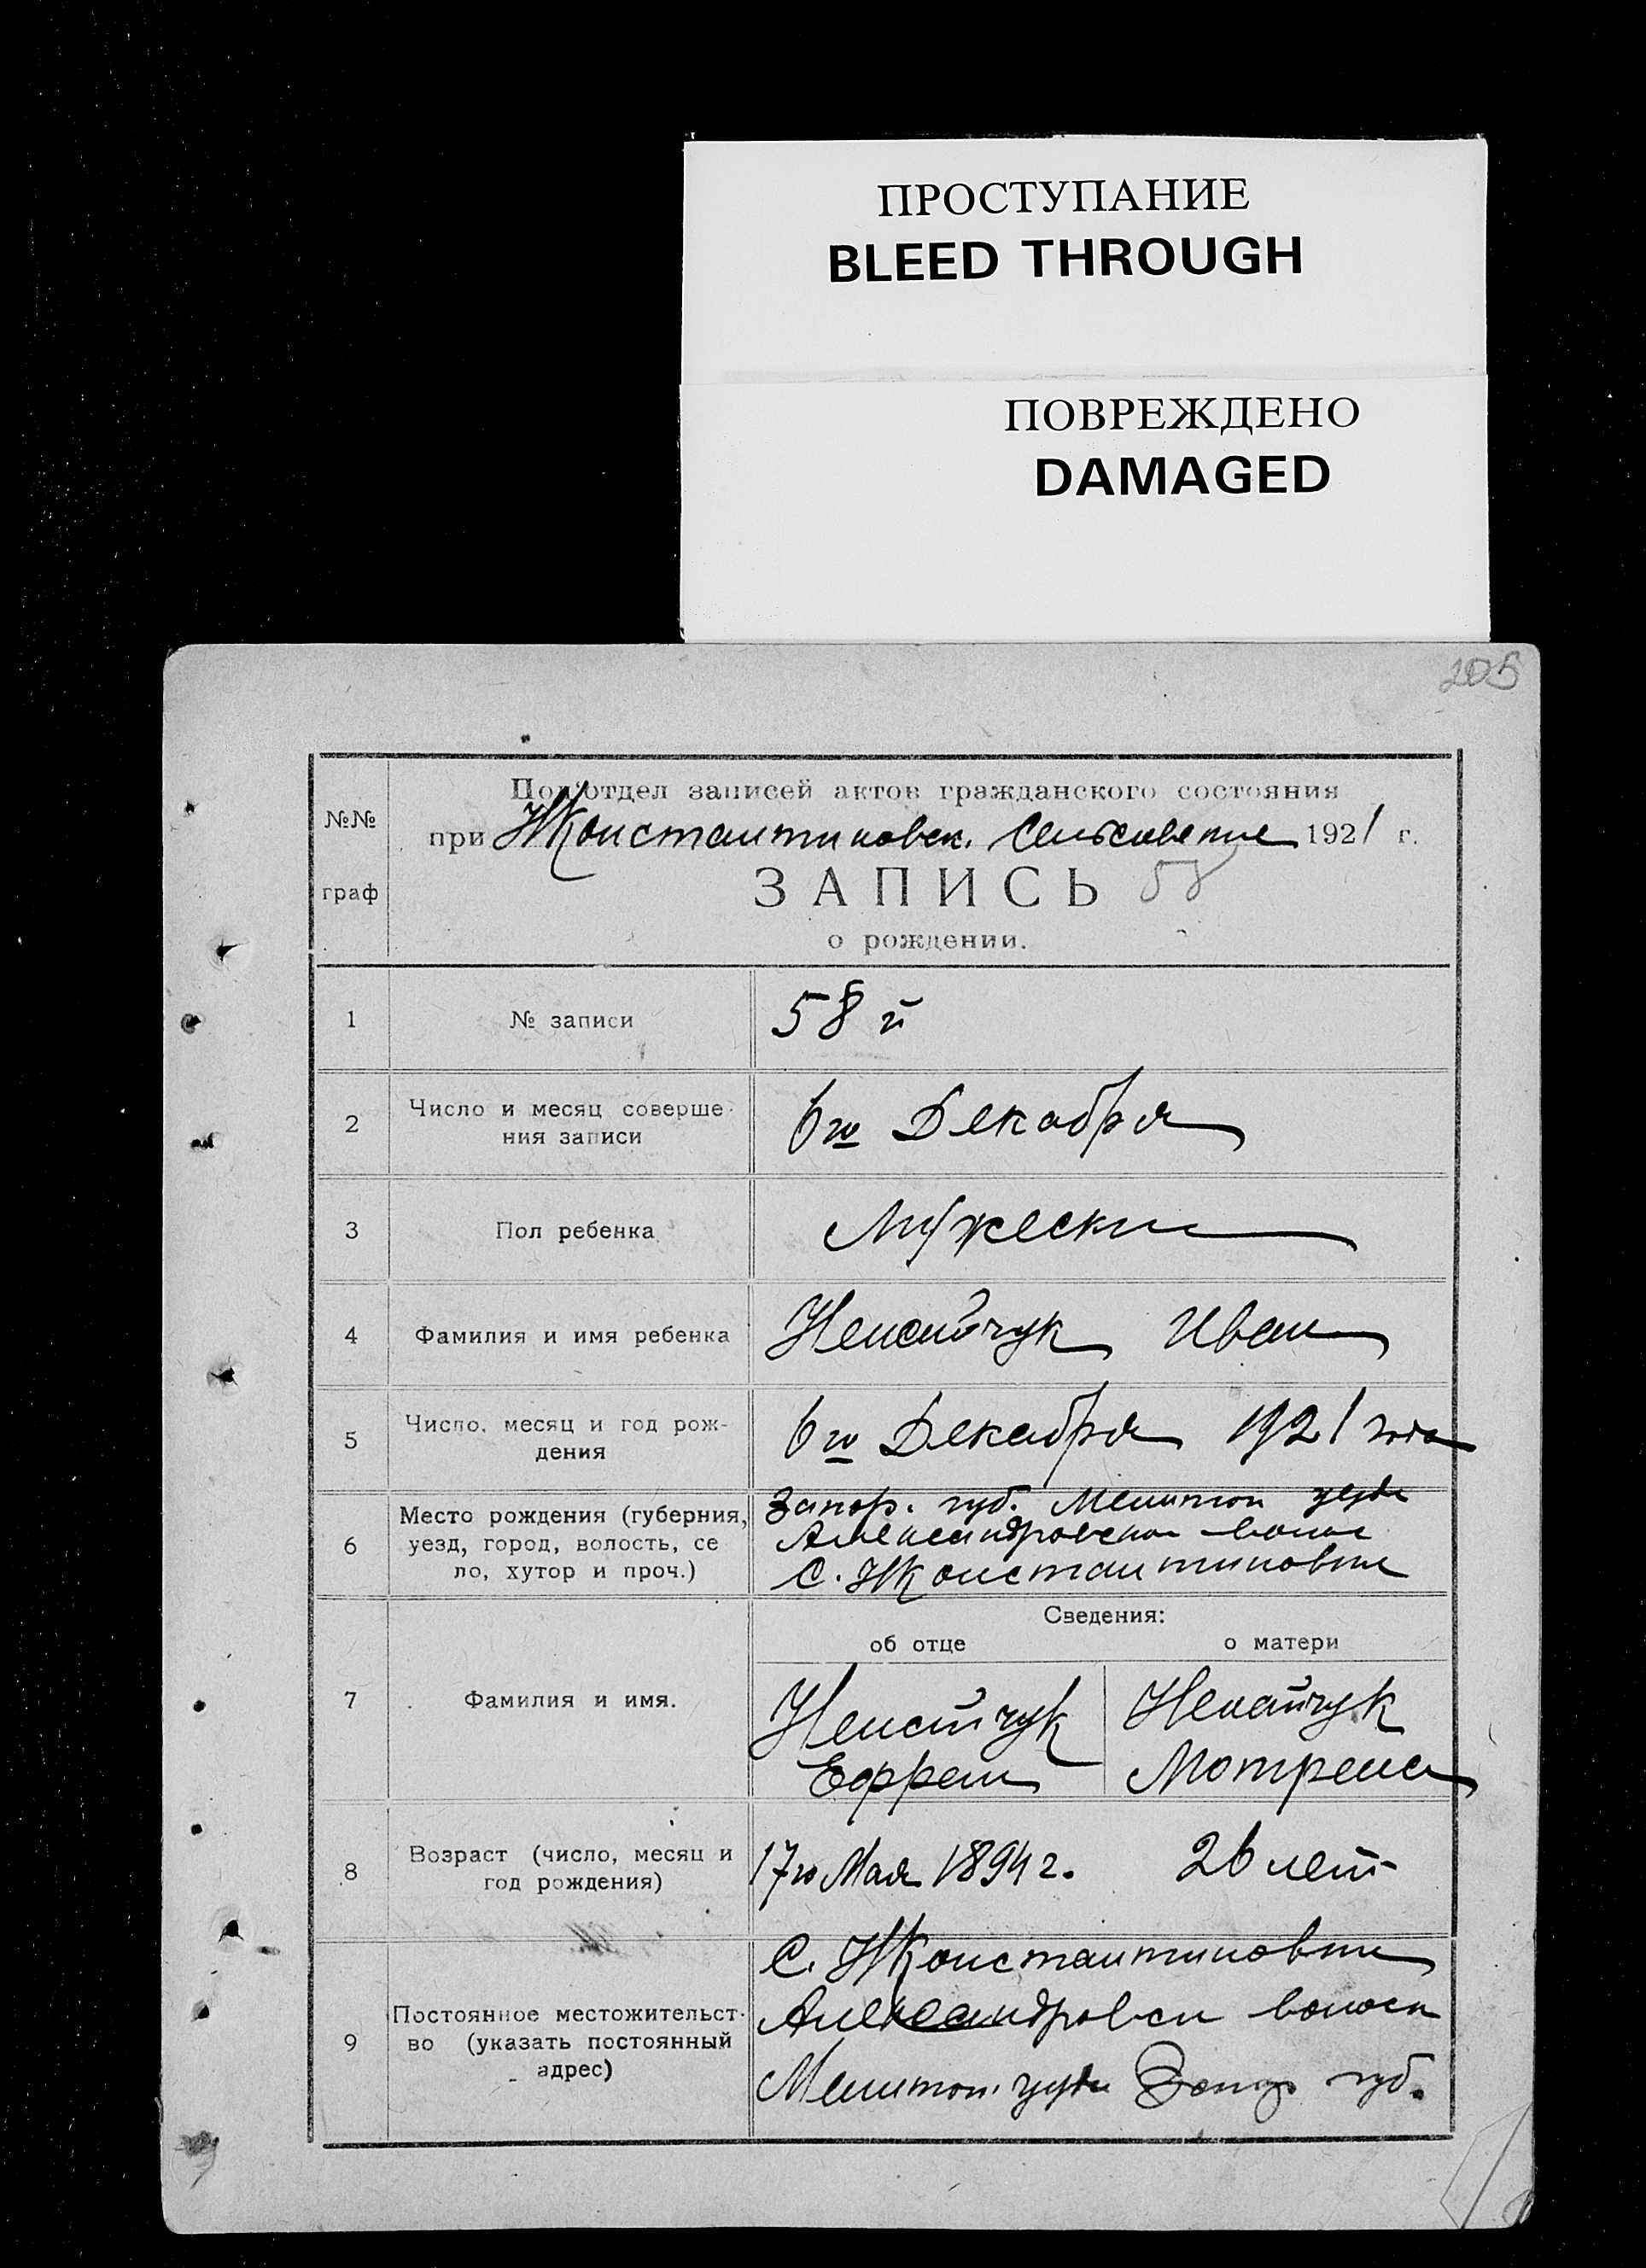 ПРОСТУПАНИЕ
BLEED THROUGH
ПОВРЕЖДЕНО
DAMAGED
205
№№
граф
Подотдел записей актов гражданского состояния
при Н Константиновск. 1921 г.
ЗАПИСЬ 58
о рождении.
1
№ записи
58 й
2
Число и месяц соверше-
ния записи
6го Декабря
3
Пол ребенка
Мужески
4
Фамилия и имя ребенка
Иван
5
Число, месяц и год рож-
дения
6го Декабря 1921 года
6
Место рождения (губерния,
уезд, город, волость, се
ло, хутор и проч.)
Запор. губ. Мелитоп уезда
Александровско волос
С. Н Константиновки
Сведения:
об отце
о матери
7
Фамилия и имя.
Ефрем
Мотрена
8
Возраст (число, месяц и
год рождения)
17го Мая 1894 г.
26 лет
9
Постоянное местожительст-
во (указать постоянный
адрес)
С. Н Константиновки
Александровск волости
Мелитоп. уезда Запор губ.